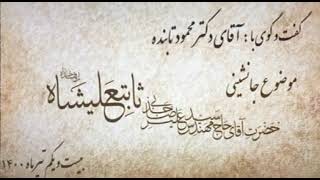 گفت و گوی با: آقای دکتر محمود تابنده
موضوع جانشینی
حضرت آقای حاج مهندس سید علیرضا جذبی
ثابتعلیشاه
بیست و یکم تیرماه ۱۴۰۰